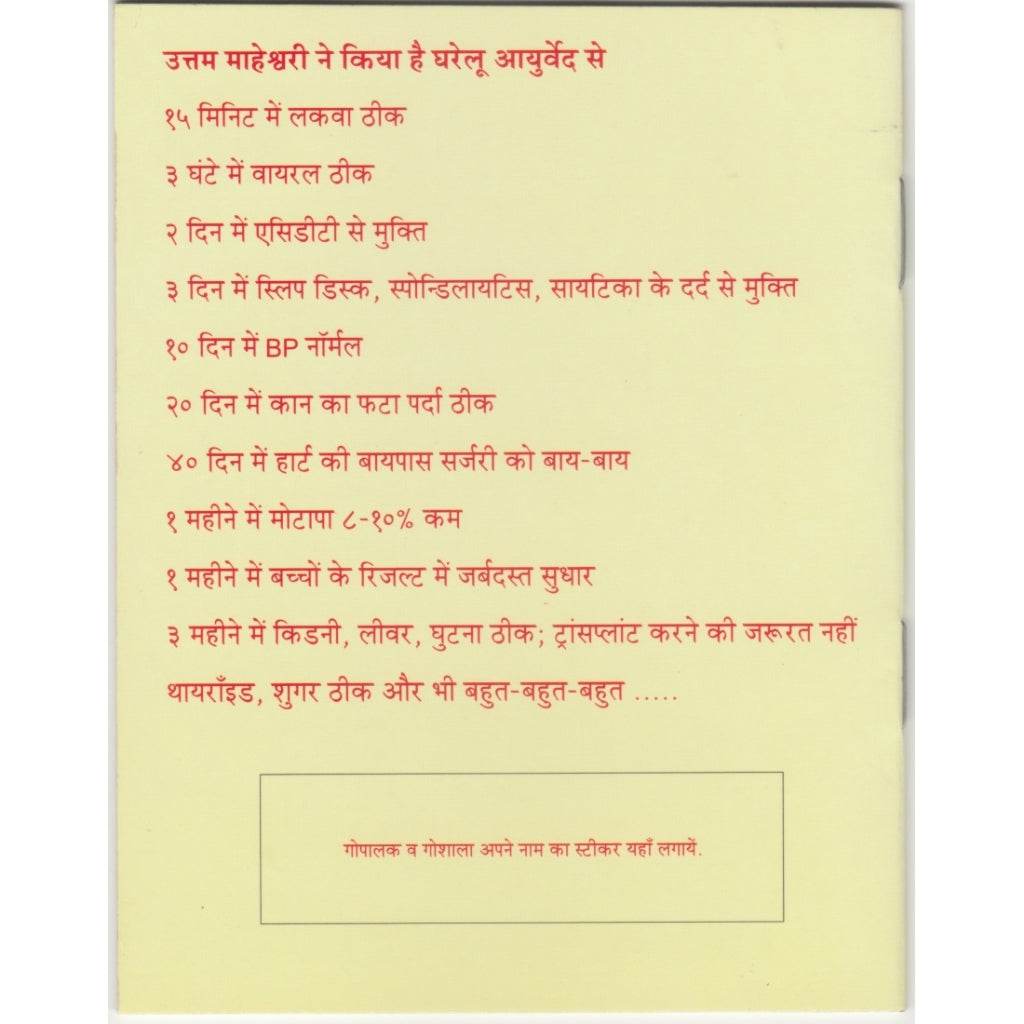 उत्तम माहेश्वरी ने किया है घरेलू आयुर्वेद से
१५ मिनिट में लकवा ठीक
३ घंटे में वायरल ठीक
२ दिन में एसिडीटी से मुक्ति
३ दिन में स्लिप डिस्क, स्पोन्डिलायटिस, सायटिका के दर्द से मुक्ति
१० दिन में BP नॉर्मल
२० दिन में कान का फटा पर्दा ठीक
४० दिन में हार्ट की बायपास सर्जरी को बाय-बाय
१ महीने में मोटापा ८-१०% कम
१ महीने में बच्चों के रिजल्ट में जर्बदस्त सुधार
३ महीने में किडनी, लीवर, घुटना ठीक; ट्रांसप्लांट करने की जरूरत नहीं
थायराँइड, शुगर ठीक और भी बहुत-बहुत-बहुत .....
गोपालक व गोशाला अपने नाम का स्टीकर यहाँ लगायें.